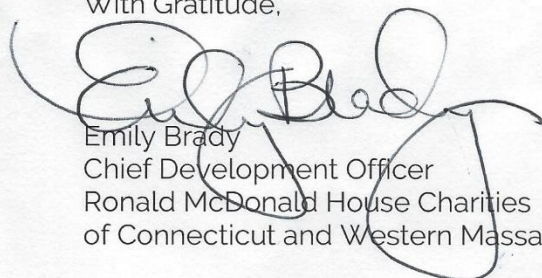 With Gratitude,
Emily Brady
Emily Brady
Chief Development Officer
Ronald McDonald House Charities
of Connecticut and Western Massa